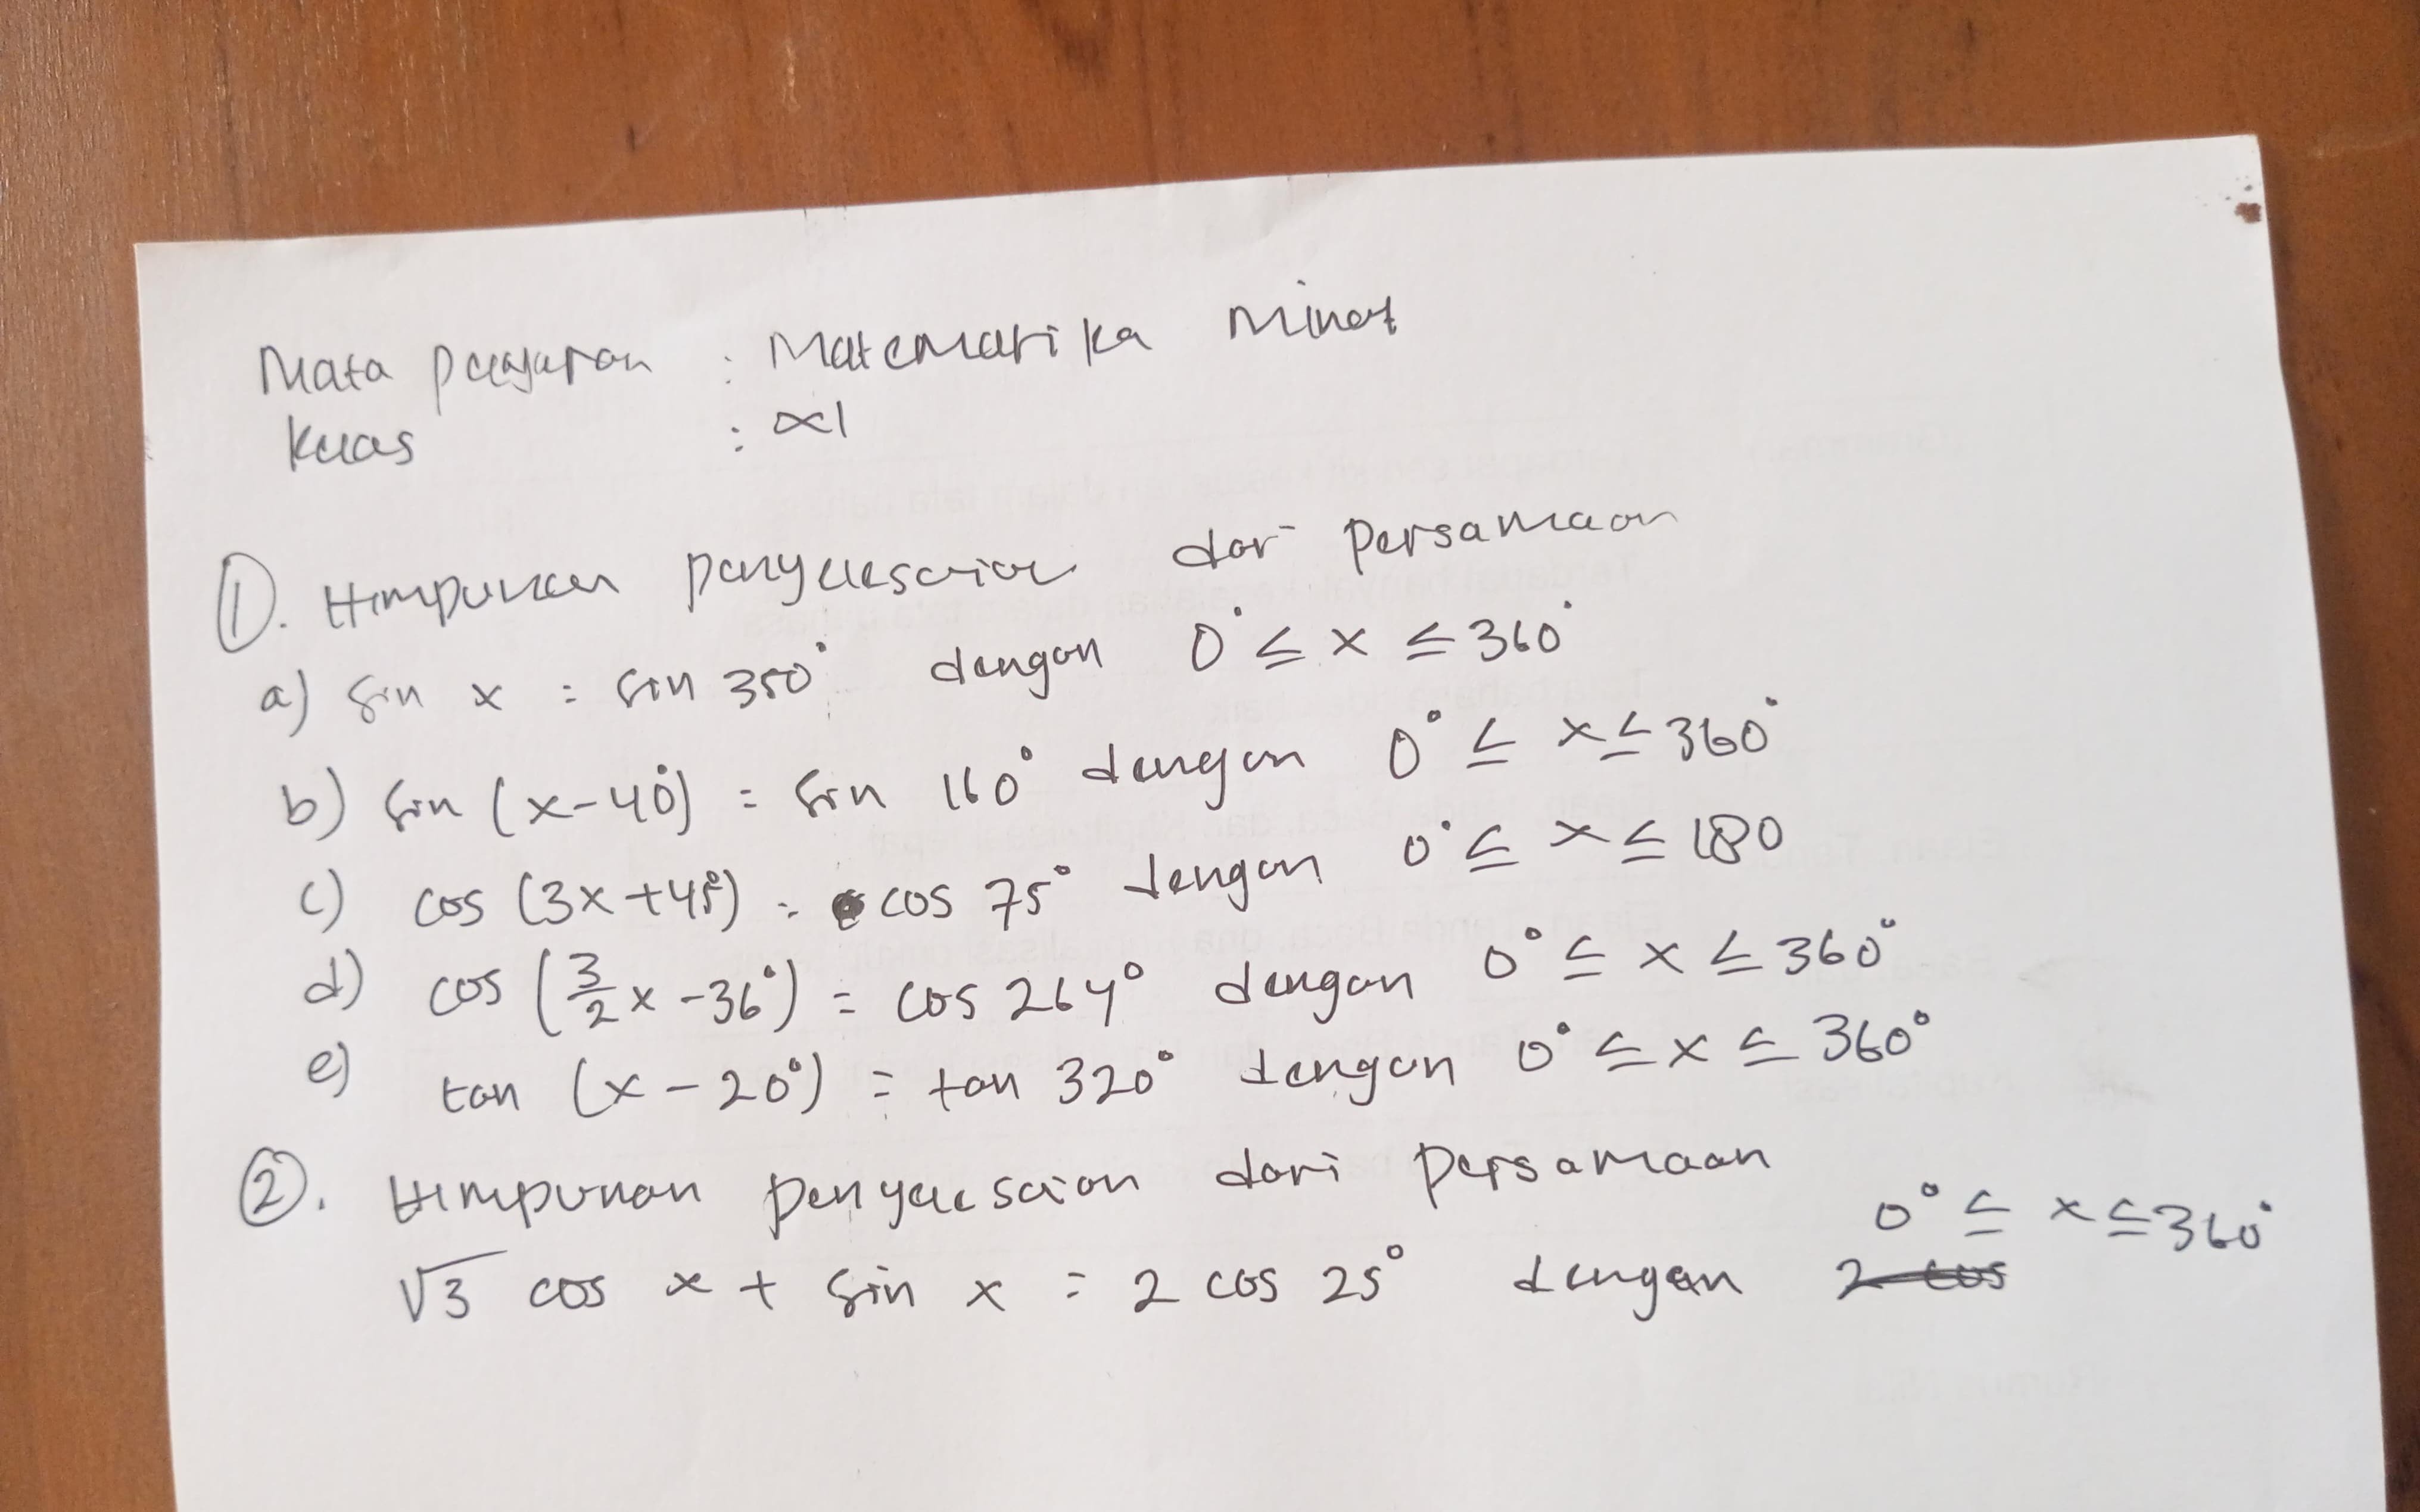 Mata pelajaran : Matematika Minat
Kelas : XI
1. Himpunan penyelesaian dari persamaan
a) sin x = sin 350° dengan 0° ≤ x ≤ 360°
b) sin (x-40°) = sin 160° dengan 0° ≤ x ≤ 360°
c) cos (3x+45°) = cos 75° dengan 0° ≤ x ≤ 180
d) cos (3/2 x -36°) = cos 264° dengan 0° ≤ x ≤ 360°
e) tan (x - 20°) = tan 320° dengan 0° ≤ x ≤ 360°
2. Himpunan penyelesaian dari persamaan
√3 cos x + sin x = 2 cos 25° dengan 0° ≤ x ≤ 360°